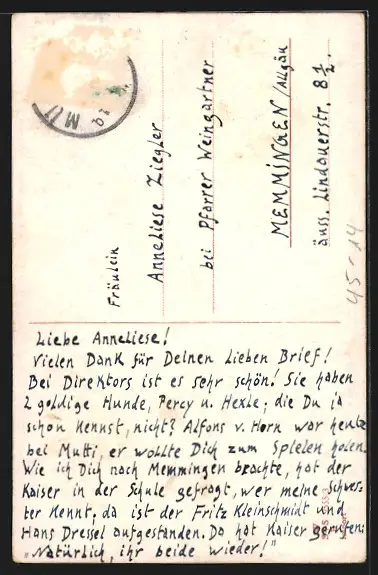 Fräulein
Anneliese Ziegler
bei Pfarrer Weingartner
MEMMINGEN/Allgäu
äuss. Lindauerstr. 8½.
45-14
Liebe Anneliese!
Vielen Dank für Deinen lieben Brief!
Bei Direktors ist es sehr schön! Sie haben
2 goldige Hunde, Percy u. Hexle; die Du ja
schon kennst, nicht? Alfons v. Horn war heute
bei Mutti, er wollte Dich zum Spielen holen.
Wie ich Dich nach Memmingen brachte, hat der
Kaiser in der Schule gefragt, wer meine Schwes-
ter kennt, da ist der Fritz Kleinschmidt und
Hans Dressel aufgestanden. Da hat Kaiser gerufen:
"Natürlich, ihr beide wieder!"